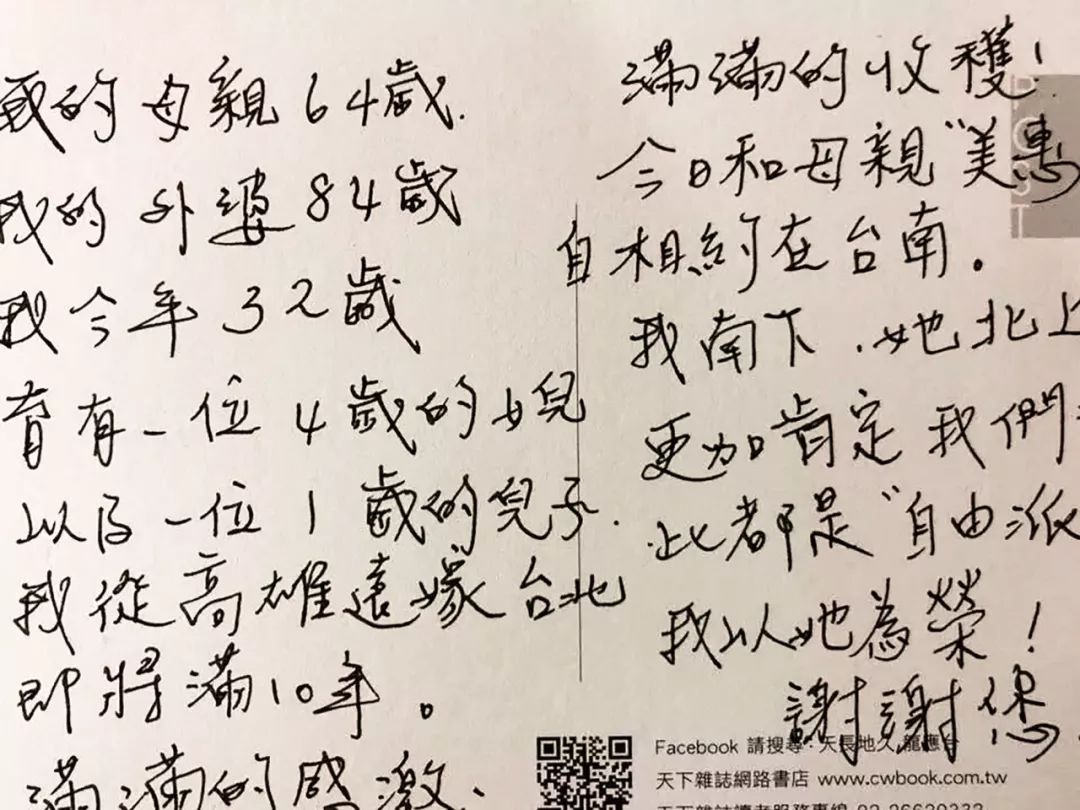 我的母親64歲.
我的外婆84歲
我今年32歲
育有一位4歲的女兒
以及一位1歲的兒子.
我從高雄遠嫁台北
即將滿10年。
滿滿的感激.
滿滿的收穫!
今日和母親"美惠
自相約在台南。
我南下.她北上
更加肯定我們
此都是"自由派
我以她為榮!
謝謝您
Facebook 請搜尋:天長地久 龍應台
天下雜誌網路書店 www.cwbook.com.tw
天下雜誌讀者服務專線 02-26620332